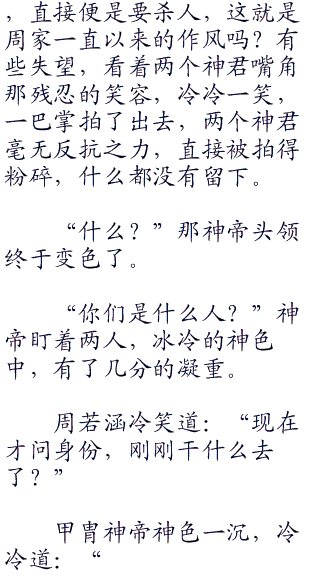 ，直接便是要杀人，这就是
周家一直以来的作风吗？有
些失望，看着两个神君嘴角
那残忍的笑容，冷冷一笑，
一巴掌拍了出去，两个神君
毫无反抗之力，直接被拍得
粉碎，什么都没有留下。
“什么？”那神帝头领
终于变色了。
“你们是什么人？”神
帝盯着两人，冰冷的神色
中，有了几分的凝重。
周若涵冷笑道：“现在
才问身份，刚刚干什么去
了？”
甲胄神帝神色一沉，冷
冷道：“